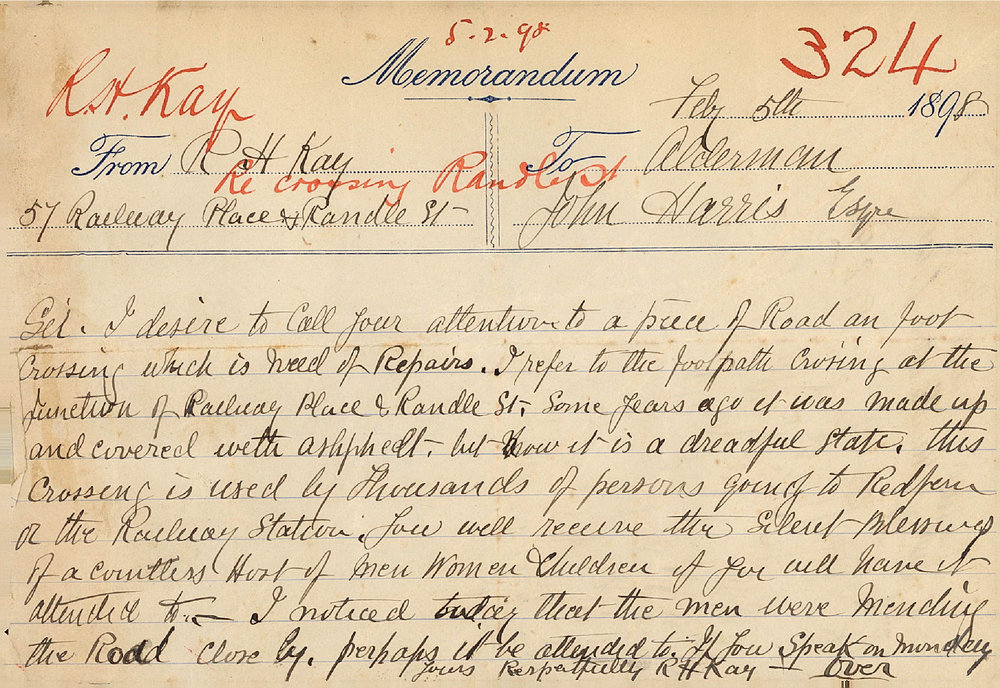 5.2.98
324
R.H. Kay
Memorandum
Feby 5th 1898
From R H Kay
To Alderman
Re crossing Randle St
57 Railway Place & Randle St
John Harris Esqre
Sir. I desire to Call your attention to a piece of Road an foot
Crossing which is need of Repairs. I refer to the footpath Crosing at the
Junction of Railway Place & Randle St. Some years ago it was made up
and covered with ashphelt. but now it is a dreadful State. this
Crossing is used by Thousands of persons going to Redfern
or the Railway Station. You will receive the Silent Blessings
of a countless Host of Men Women Children if you will have it
attended to. - I noticed today that the men were Mending
the Rodd Close by. perhaps it be attended to. If you Speak on monday
Yours Respectfully R H Kay — Over